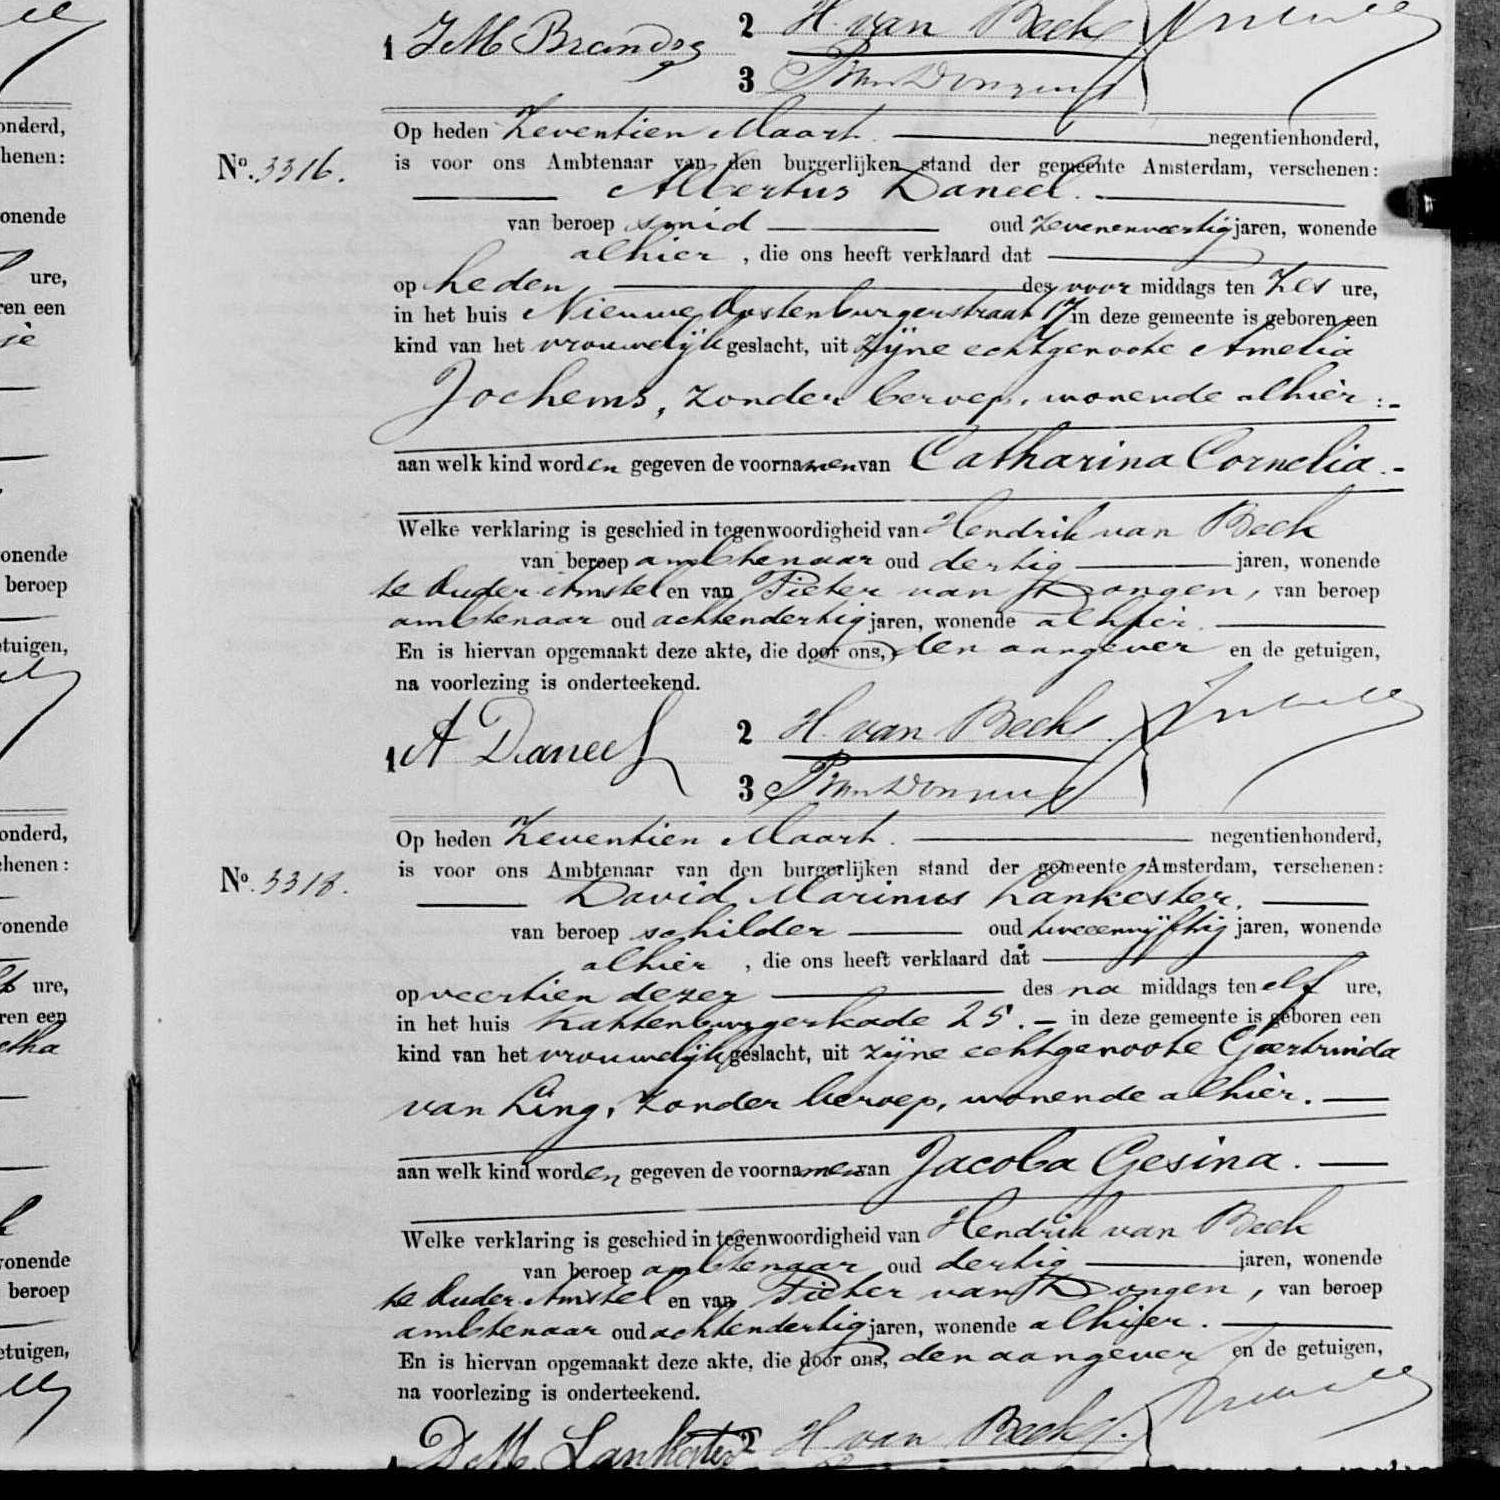 1 J M Brands
2 H. van Beek
3 P van Dongen
Op heden Zeventien Maart. negentienhonderd,
No. 3316. is voor ons Ambtenaar van den burgerlijken stand der gemeente Amsterdam, verschenen:
Albertus Daneel.
van beroep smid oud zevenenveertig jaren, wonende
alhier, die ons heeft verklaard dat
op heden des voor middags ten zes ure,
in het huis Nieuwe Oostenburgerstraat 17 in deze gemeente is geboren een
kind van het vrouwelijk geslacht, uit zijne echtgenoote Amelia
Jochems, zonder beroep, wonende alhier:-
aan welk kind worden gegeven de voornamen van Catharina Cornelia.-
Welke verklaring is geschied in tegenwoordigheid van Hendrik van Beek
van beroep ambtenaar oud dertig jaren, wonende
te Ouder-Amstel en van Pieter van Dongen, van beroep
ambtenaar oud achtendertig jaren, wonende alhier.
En is hiervan opgemaakt deze akte, die door ons, den aangever en de getuigen,
na voorlezing is onderteekend.
1 A Daneel
2 H. van Beek
3 P van Dongen
Op heden Zeventien Maart. negentienhonderd,
No. 3318. is voor ons Ambtenaar van den burgerlijken stand der gemeente Amsterdam, verschenen:
David Marinus Lankester.
van beroep schilder oud tweeenvijftig jaren, wonende
alhier, die ons heeft verklaard dat
op veertien dezer des na middags ten elf ure,
in het huis Kattenburgerkade 25.- in deze gemeente is geboren een
kind van het vrouwelijk geslacht, uit zijne echtgenoote Geertruida
van Ling, zonder beroep, wonende alhier.
aan welk kind worden gegeven de voornamen van Jacoba Gesina.
Welke verklaring is geschied in tegenwoordigheid van Hendrik van Beek
van beroep ambtenaar oud dertig jaren, wonende
te Ouder-Amstel en van Pieter van Dongen, van beroep
ambtenaar oud achtendertig jaren, wonende alhier.
En is hiervan opgemaakt deze akte, die door ons, den aangever en de getuigen,
na voorlezing is onderteekend.
D M Lankester 2 H van Beek.